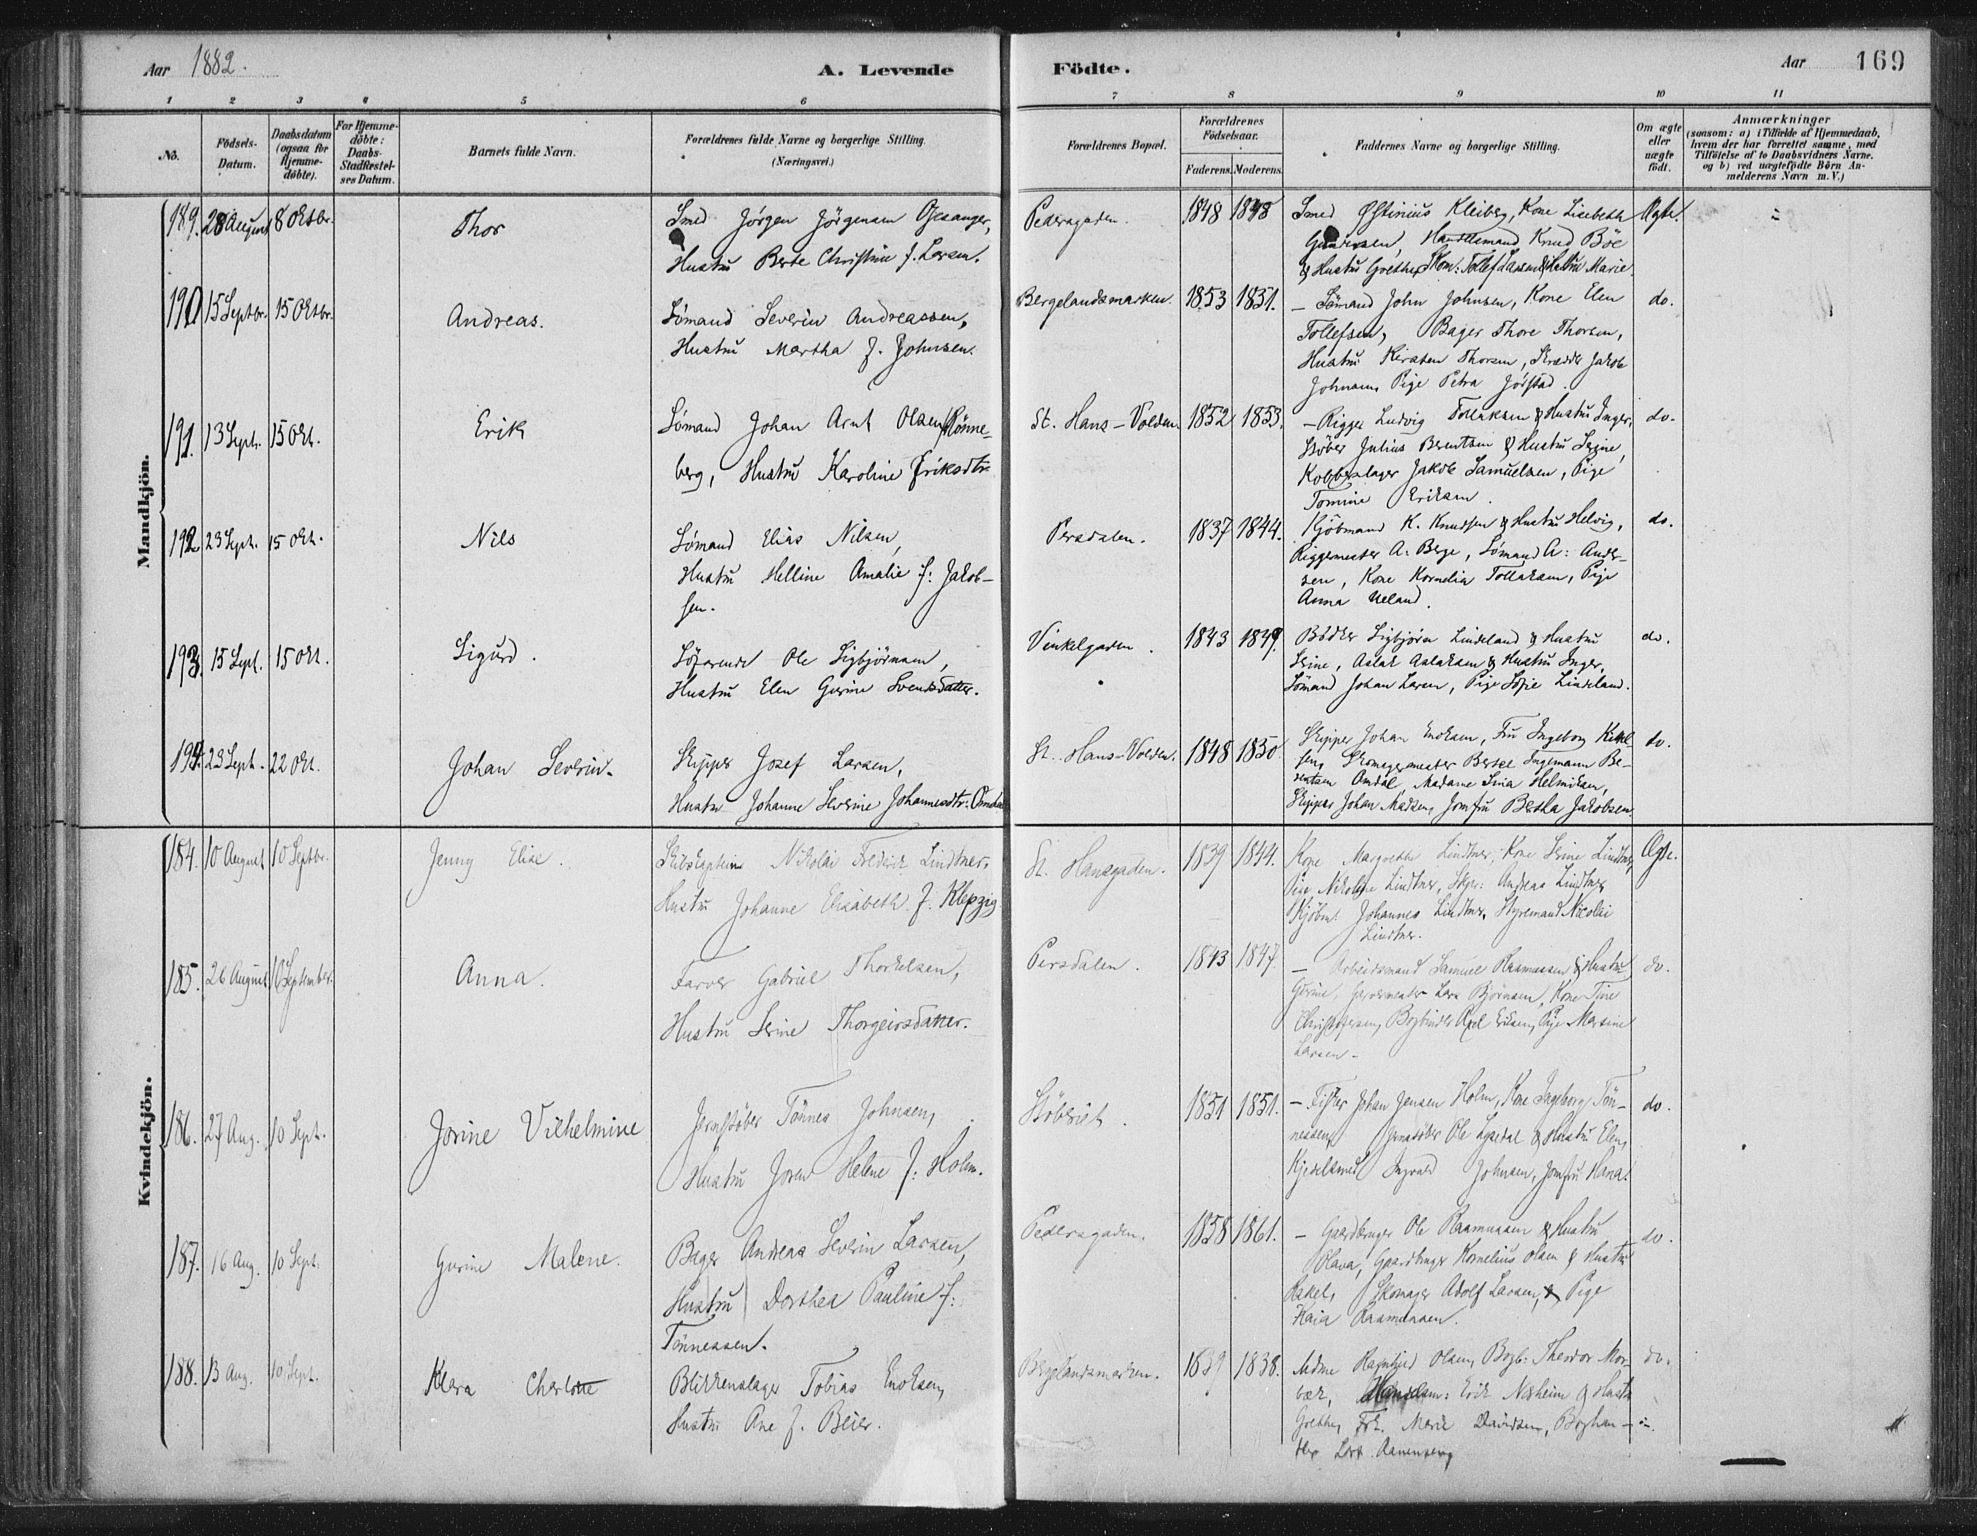 Aar 1882.
A. Levende
Födte.
Aar 169
1 2 3 4 5 6 7 8 9 10 11
No.
Födsels-Datum.
Daabsdatum (ogsaa for Hjemme-döbte).
For Hjemme-döbte: Daabs-Stadfæstel-ses Datum.
Barnets fulde Navn.
Forældrenes fulde Navne og borgerlige Stilling.
(Næringsvei.)
Forældrenes Bopæl.
Forældrenes Födselsaar.
Faderens. Moderens.
Faddernes Navne og borgerlige Stilling.
Om ægte eller uægte født.
Anmærkninger
(saasom: a) i Tilfælde af Hjemmedaab,
hvem der har forrettet samme, med
Tilföielse af to Daabsvidners Navne,
og b) ved uægtefödte Börn An-
melderens Navn m. V.)
Mandkjön.
189. 28 August 8 Oktbr. Thor
Smed Jörgen Jörgensen Ogesanger,
Hustru Berte Christine f. Larsen.
Pedersgaden. 1848 1848
Smed Østinius Kleiberg, Kone Lisebeth
Gundersen, Handelsmand Knud Böe
& Hustru Grethe, Tollef Lassen & Hustru Marie
Ægte.
190 15 Septbr. 15 Oktbr. Andreas.
Sömand Severin Andreassen,
Hustru Martha f. Johnsen.
Bergelandsmarken. 1853 1851.
– Sömand John Johnsen, Kone Elen
Tollefsen, Bager Thore Thorsen,
Hustru Kirsten Thorsen, Skrædder Jakob
Johnsen, Pige Petra Jörstad.
do.
191. 13 Sept. 15 Okt. Erik
Sömand Johan Arnt Olsen Rönne-
berg, Hustru Karoline Eriksdtr.
St. Hans-Volden. 1852 1853.
– Rigger Ludvig Tollaksen & Hustru Inger,
Støber Julius Berntsen & Hustru Serine,
Kobberslager Jakob Samuelsen, Pige
Tomine Eriksen.
do.
192 23 Sept. 15 Okt. Nils
Sömand Elias Nilsen,
Hustru Helline Amalie f: Jakob-
sen.
Persdalen. 1837 1844.
Kjöbmand K. Knudsen & Hustru Helvig,
Riggemester A. Berge, Sömand A: Ander-
sen, Kone Kornelia Tollaksen, Pige
Anna Ueland.
do.
193. 15 Sept. 15 Okt. Sigurd.
Söfarende Ole Sigbjörnsen,
Hustru Elen Gurine Svendsdatter.
Vinkelgaden. 1843 1849.
Bödker Sigbjörn Lindeland & Hustru
Serine, Aslak Aslaksen & Hustru Inger,
Sömand Johan Larsen, Pige Sofie Lindeland.
do.
194. 23 Sept. 22 Okt. Johan Severin.
Skipper Josef Larsen,
Hustru Johanne Severine Johannesdtr. Omdal
St. Hans-Volden. 1848 1850
Skipper Johan Enoksen, Fru Ingeborg
Skomagermester Bertel Ingemann Be-
rentsen Omdal, Madame Sina Helmiksen,
Skipper Johan Madsen, Jomfru Bertha Jakobsen
do.
Kvindekjön.
184. 10 August 10 Septbr. Jenny Elise.
Skibskaptein Nikolai Fredrik Lindtner,
Hustru Johanne Elisabeth f. Klepzig
St. Hansgaden. 1839 1844.
Kone Margrethe Lindtner, Kone Serine Lindtner,
Pige Nikoline Lindtner, Skpr: Andreas Lindtner
Kjöbm. Johannes Lindtner, Styrmand Nicolai
Lindtner.
Ægte.
185. 26 August 10 September Anna.
Farver Gabriel Thorkelsen,
Hustru Serine Thorgeirsdatter.
Persdalen. 1843 1847.
– Arbeidsmand Samuel Rasmussen & Hustru
Gurine, Garvermester Lars Björnsen, Kone Tine
Christofersen, Bogbinder Axel Eriksen, Pige Martine
Larsen –
do.
186. 27 Aug. 10 Sept. Jorine Vilhelmine
Jernstøber Tönnes Johnsen,
Hustru Joren Helene f: Holm.
Stöberiet. 1851 1851.
– Fisker Johan Jensen Holm, Kone Ingeborg Tön-
nessen, Jernstöber Ole Lysedal & Hustru Elen,
Kjedelsmed Ingvald Johnsen, Jomfru Hana
do.
187. 16 Aug. 10 Sept. Gurine Malene.
Bager Andreas Severin Larsen,
Hustru Dorthea Pauline f:
Tönnessen.
Pedersgaden. 1858 1861.
– Gaardbruger Ole Rasmussen & Hustru
Olava, Gaardbruger Kornelius Olsen & Hustru
Rakel, Skomager Adolf Larsen, & Pige
Kaia Rasmussen.
do.
188. 13 Aug. 10 Sept. Klara Charlotte
Blikkenslager Tobias Enoksen,
Hustru Ane f. Beier.
Bergelandsmarken. 1839 1838.
Madme Ragnhild Olsen, Bogb: Theodor Mor-
bæk, Handelsm: Erik Næsheim & Hustru
Grethe, Frk. Marie Davidsen, Boghan-
dler Lars Aanensen,
do.